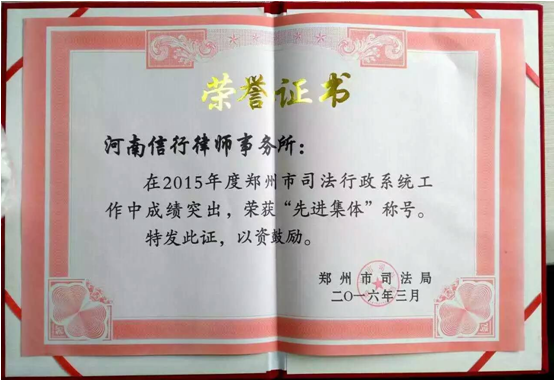 荣誉证书
河南信行律师事务所：
在2015年度郑州市司法行政系统工
作中成绩突出，荣获“先进集体”称号。
特发此证，以资鼓励。
郑州市司法局
二〇一六年三月